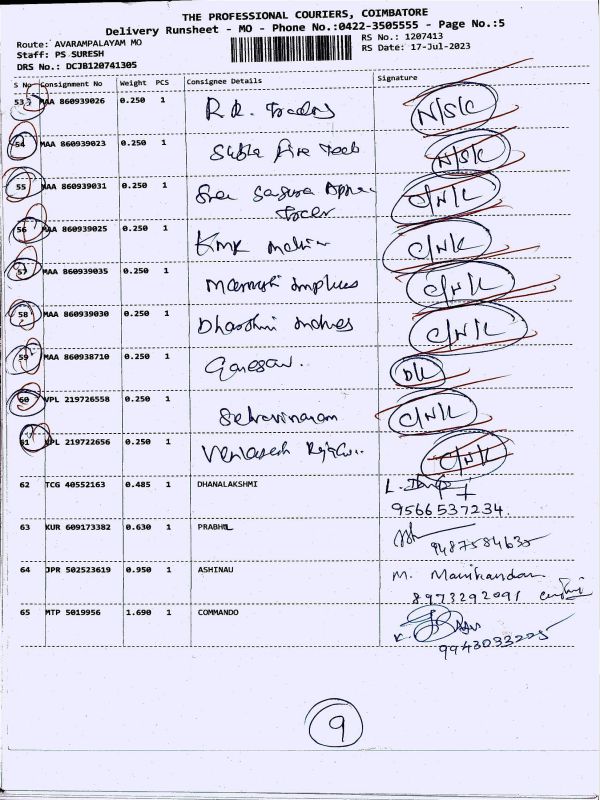 THE PROFESSIONAL COURIERS, COIMBATORE
Delivery Runsheet - MO - Phone No.:0422-3505555 - Page No.:5
Route: AVARAMPALAYAM MO RS No.: 1207413
Staff: PS SURESH RS Date: 17-Jul-2023
DRS No.: DCJB120741305
S No Consignment No Weight PCS Consignee Details Signature
53 MAA 860939026 0.250 1 R.R. N/S/K
54 MAA 860939023 0.250 1 Fire Tech N/S/K
55 MAA 860939031 0.250 1 Sree C/N/K
56 MAA 860939025 0.250 1 KMK C/N/K
57 MAA 860939035 0.250 1 C/N/K
58 MAA 860939030 0.250 1 C/N/K
59 MAA 860938710 0.250 1 Ganesan. D/K
60 VPL 219726558 0.250 1 C/N/K
61 VPL 219722656 0.250 1 C/N/K
62 TCG 40552163 0.485 1 DHANALAKSHMI L.
9566537234.
63 KUR 609173382 0.630 1 PRABHU
9487584635
64 JPR 502523619 0.950 1 ASHINAU M. Manikandan
8973292091
65 MTP 5019956 1.690 1 COMMANDO K.
9943033205
9